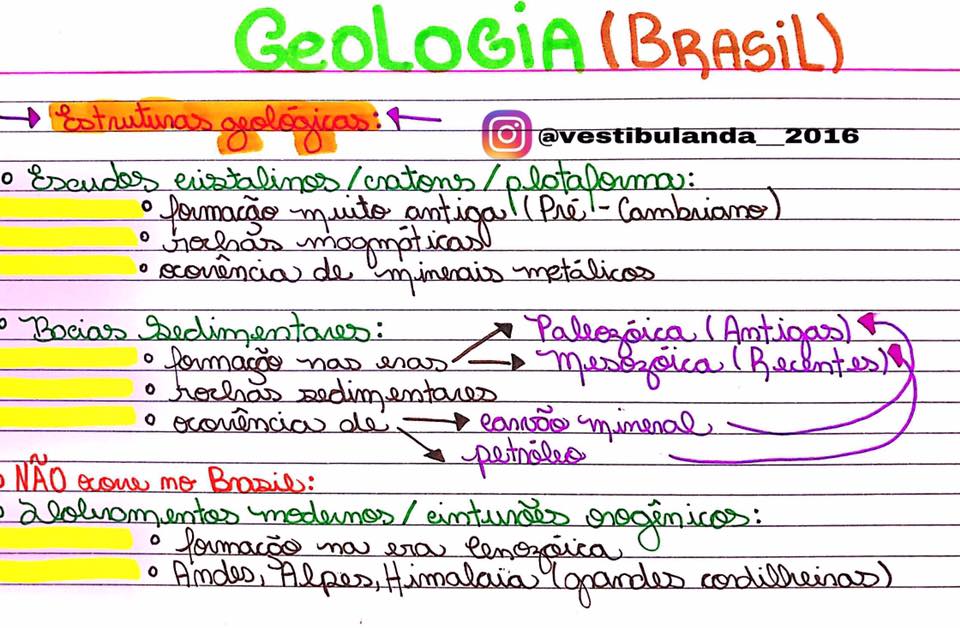 GEOLOGIA (BRASIL)
Estruturas geológicas:
@vestibulanda__2016
Escudos cristalinos/cratons/plataforma:
formação muito antiga (Pré-Cambriano)
rochas magmáticas
ocorrência de minerais metálicos
Bacias Sedimentares:
Paleozóica (Antigas)
formação nas eras
Mesozóica (Recentes)
rochas sedimentares
ocorrência de
carvão mineral
petróleo
NÃO ocorre no Brasil:
Dobramentos modernos/cinturões orogênicos:
formação na era Cenozóica
Andes, Alpes, Himalaia (grandes cordilheiras)